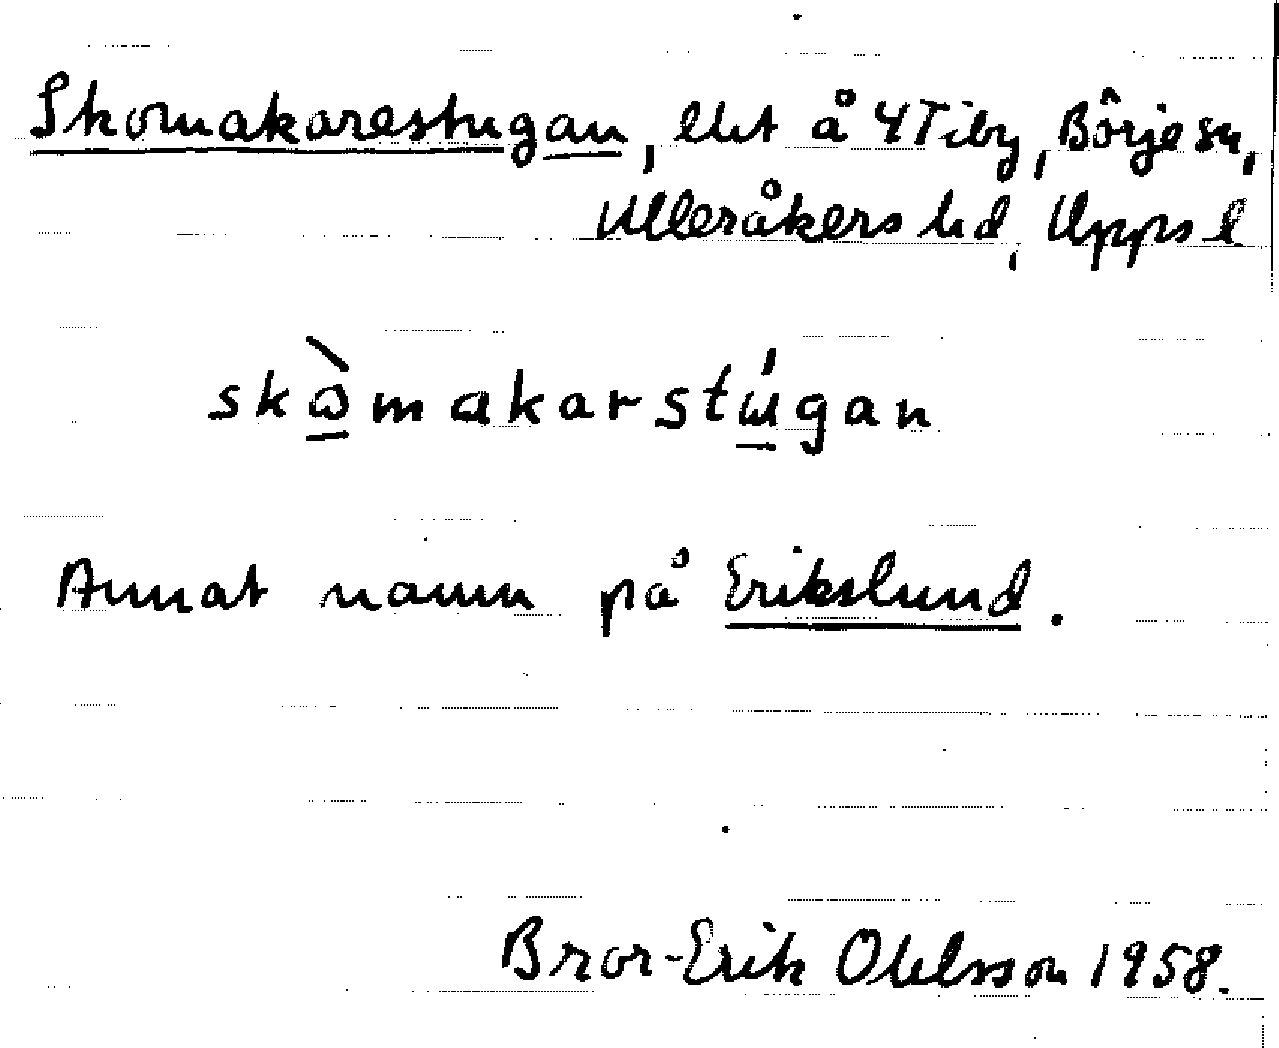 Skomakarestugan, lht å Ytiby, Börje sn,
Ulleråkers hd, Upps l
skòmakarstúgan
Annat namn på Erikslund.
Bror-Erik Ohlsson 1958.